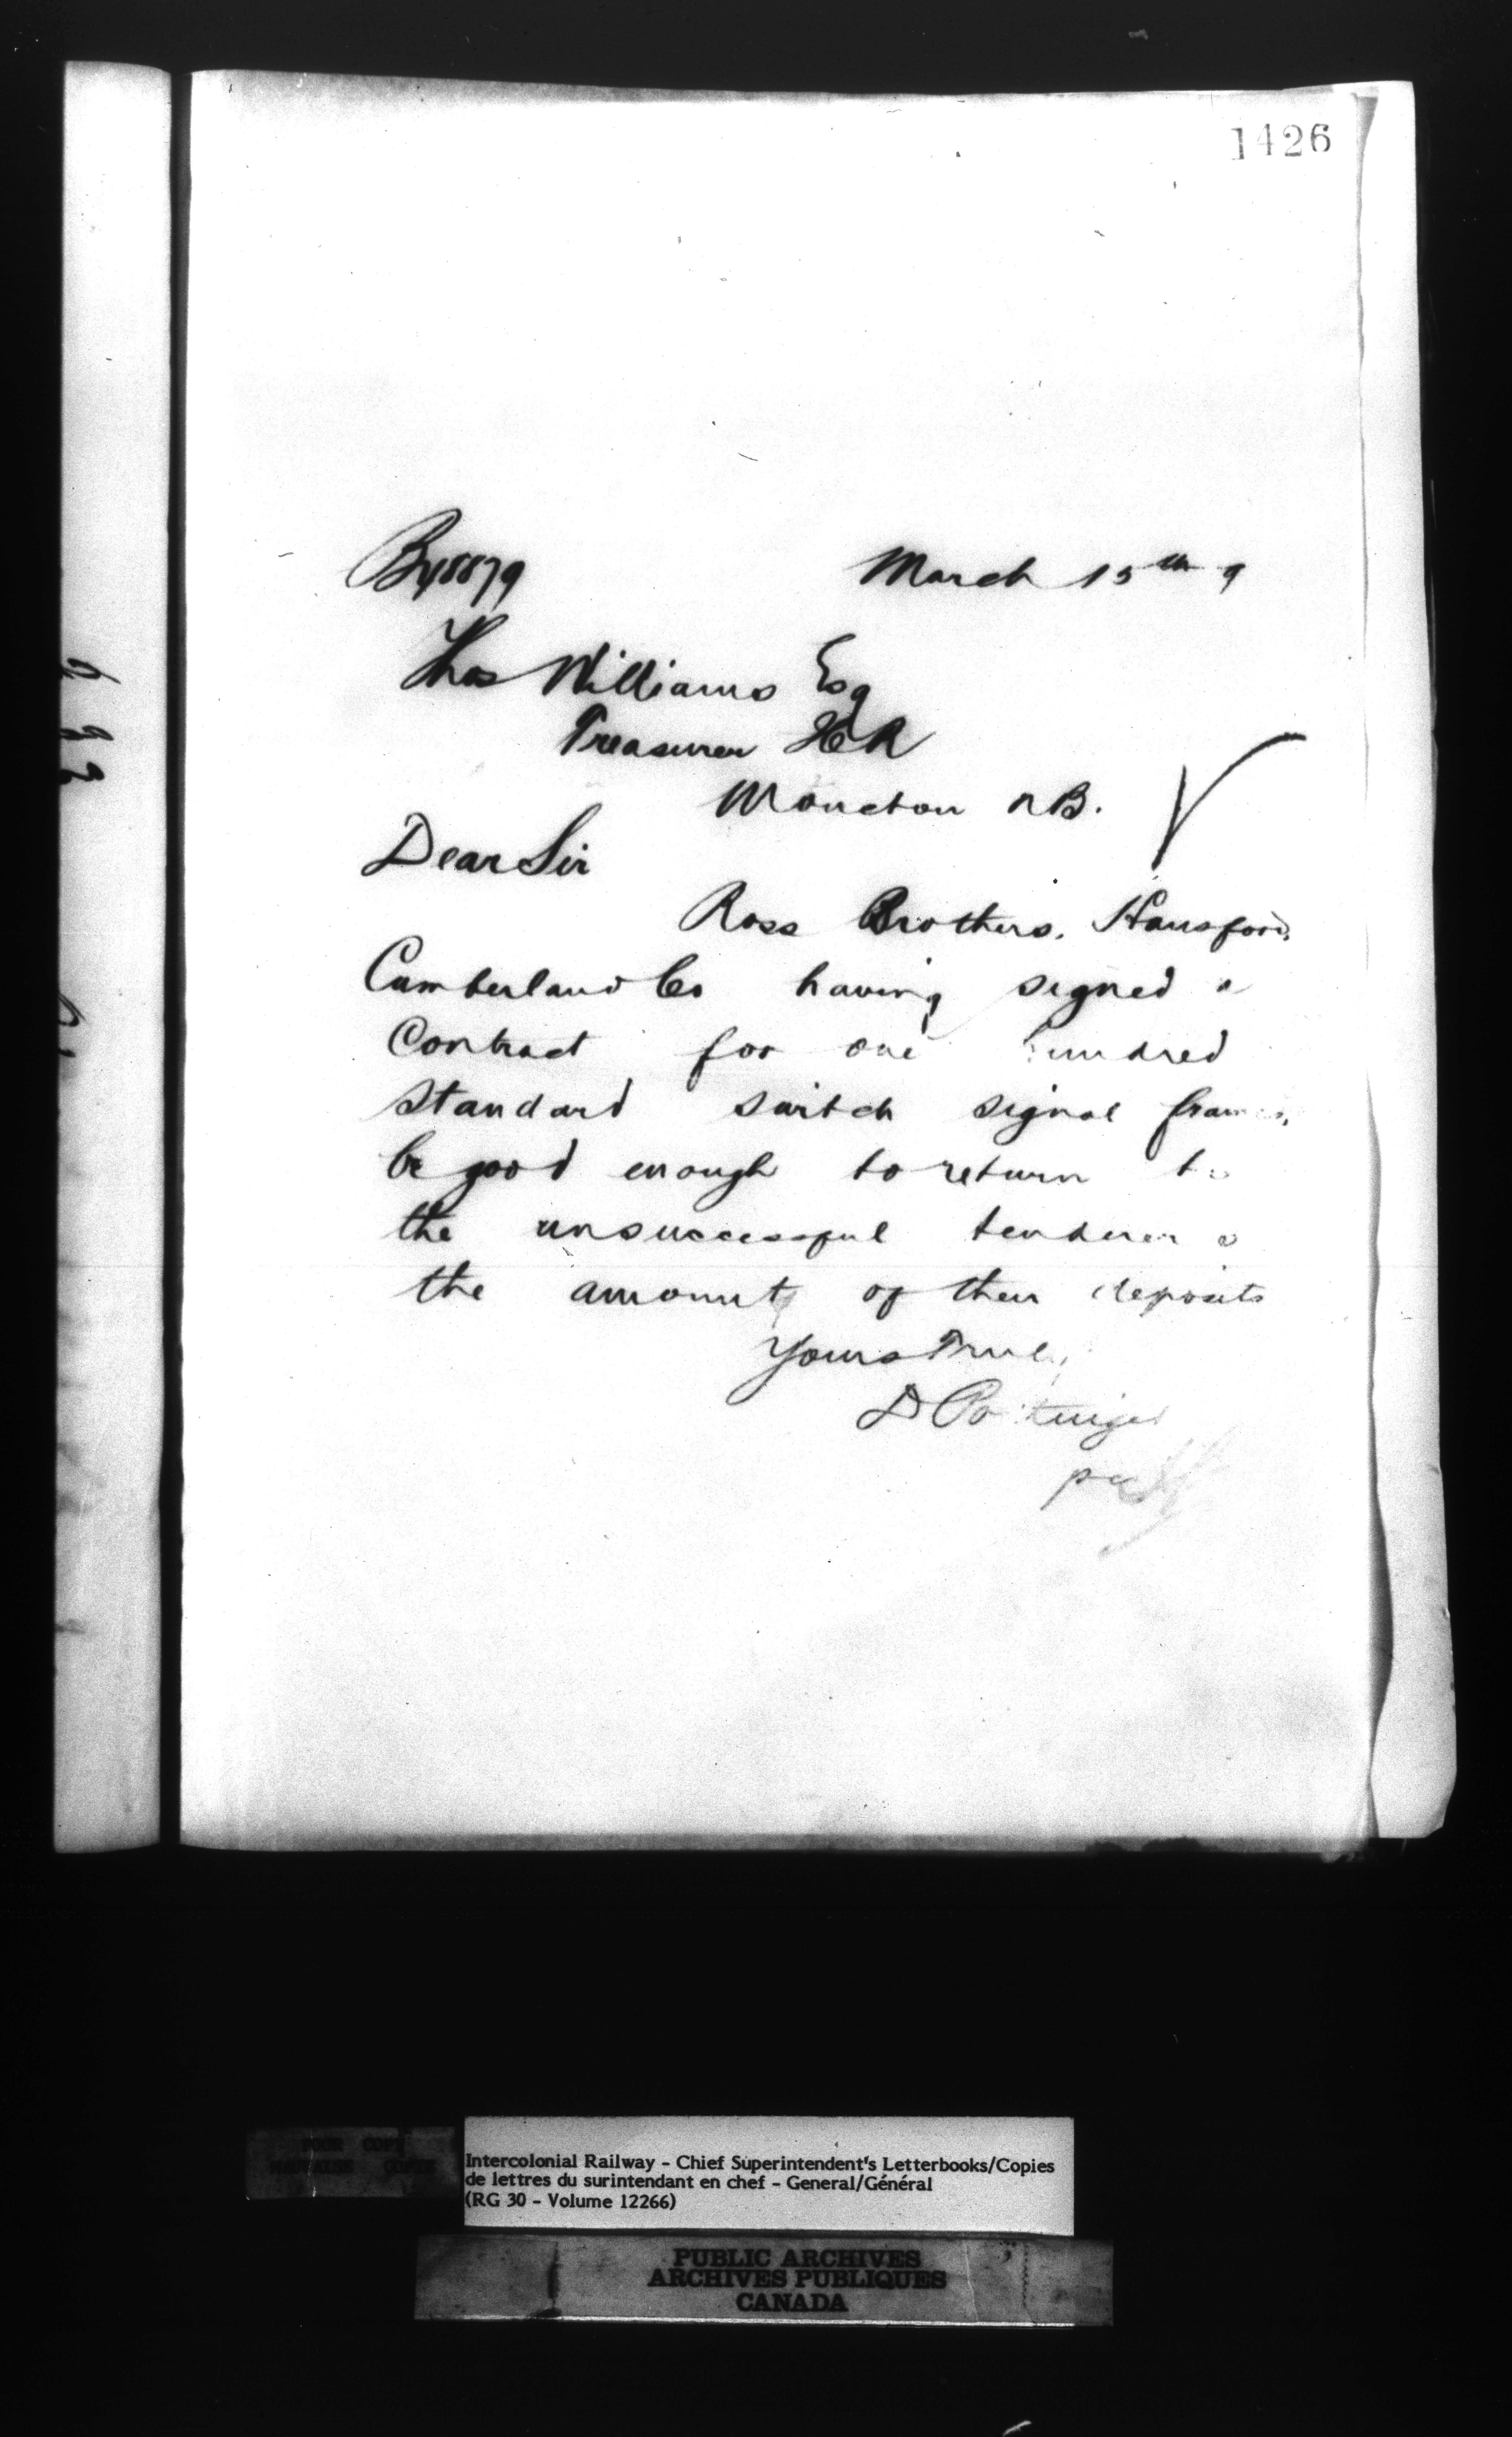 1426
March 15th 9
Thos Williams Esq
Treasurer ICR
Moncton NB.
Dear Sir
Ross Brothers. Hansford,
Cumberland Co having signed a
Contract for one hundred
standard switch signal frames,
be good enough to return to
the unsuccessful tenderers
the amounts of their deposits
Yours Truly
D Pottinger
per
POOR COPY
MAUVAISE COPIE
Intercolonial Railway - Chief Superintendent's Letterbooks/Copies
de lettres du surintendant en chef - General/Général
(RG 30 - Volume 12266)
PUBLIC ARCHIVES
ARCHIVES PUBLIQUES
CANADA